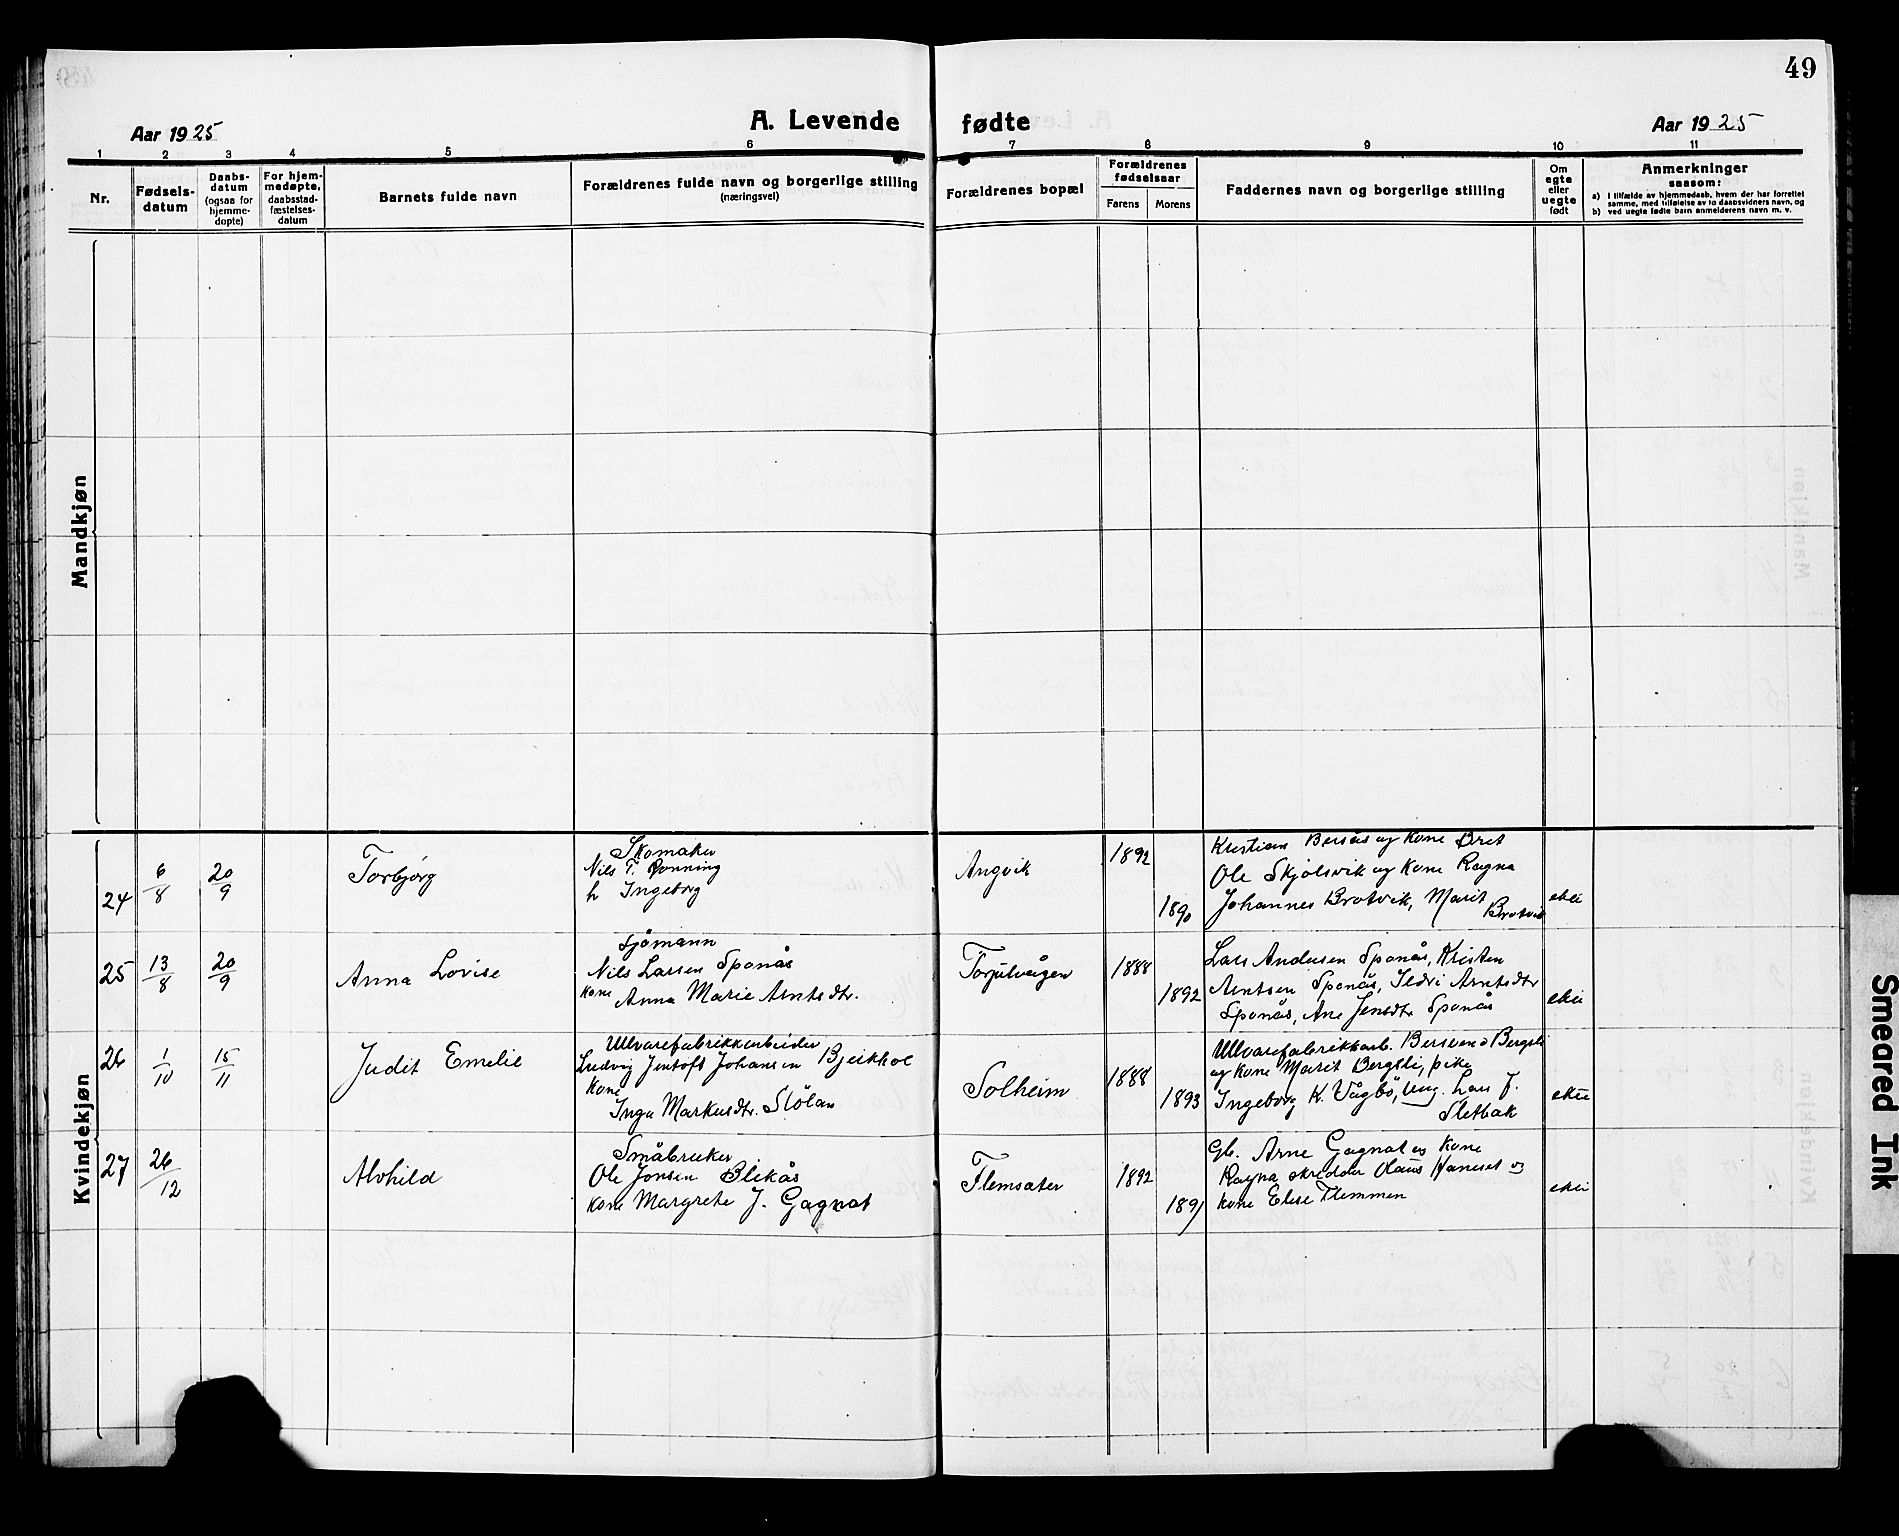 49
Aar 1925
A. Levende fødte
Aar 1925
1 2 3 4 5 6 7 8 9 10 11
Nr.
Fødsels-
datum
Daabs-
datum
(ogsaa for
hjemme-
døpte)
For hjem-
medøpte,
daabsstad-
fæstelses-
datum
Barnets fulde navn
Forældrenes fulde navn og borgerlige stilling
(næringsvei)
Forældrenes bopæl
Forældrenes
fødselsaar
Farens Morens
Faddernes navn og borgerlige stilling
Om
egte
eller
uegte
født
Anmerkninger
saasom:
a) I tilfælde av hjemmedaab, hvem der har forrettet
samme, med tilføielse av to daabsvidners navn, og
b) ved uegte fødte barn anmelderens navn m. v.
Mandkjøn
Kvindekjøn
24
6/8
20/9
Torbjørg
Skomaker
Nils T. Rønning
h Ingeborg
Angvik
1892
1890
Kristian Bersås og kone Bret
Ole Skjølsvik og kone Ragna
Johannes Brotvik, Marit
Brotvik
ekte
25
13/8
20/9
Anna Lovise
Sjømann
Nils Larsen Sponås
kone Anna Marie Arntsdtr.
Torjulvågen
1888
1892
Lars Andersen Sponås, Kristen
Arntsen Sponås, Ildri Arntsdtr
Sponås, Ane Jensdtr Sponås
ekte
26
1/10
15/11
Judit Emelie
Ullvarefabrikkarbeider
Ludvig Jentoft Johansen
Kone
Inga Markusdtr.
Solheim
1888
1893
Ullvarefabrikkarb. Bersvend Bergsli
og kone Marit Bergsli, pike
Ingeborg K. Vågbø, ung. Lars J.
Sletbak
ekte
27
26/12
Alvhild
Småbruker
Ole Jonsen Blekås
kone Margrete J. Gagnat
Flemsæter
1892
1891
Gb. Arne Gagnat og kone
Ragna skredder Olaus Hanset og
kone Elise Flemmen
ekte
Smeared Ink